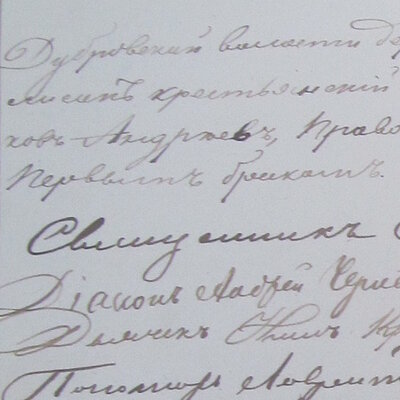 Дубровской волости де
крестьянский
ковъ Андреевъ, Право
Первымъ бракомъ.
Священникъ
Діаконъ Андрей Черн
Дьячекъ
Пономарь Лаврент